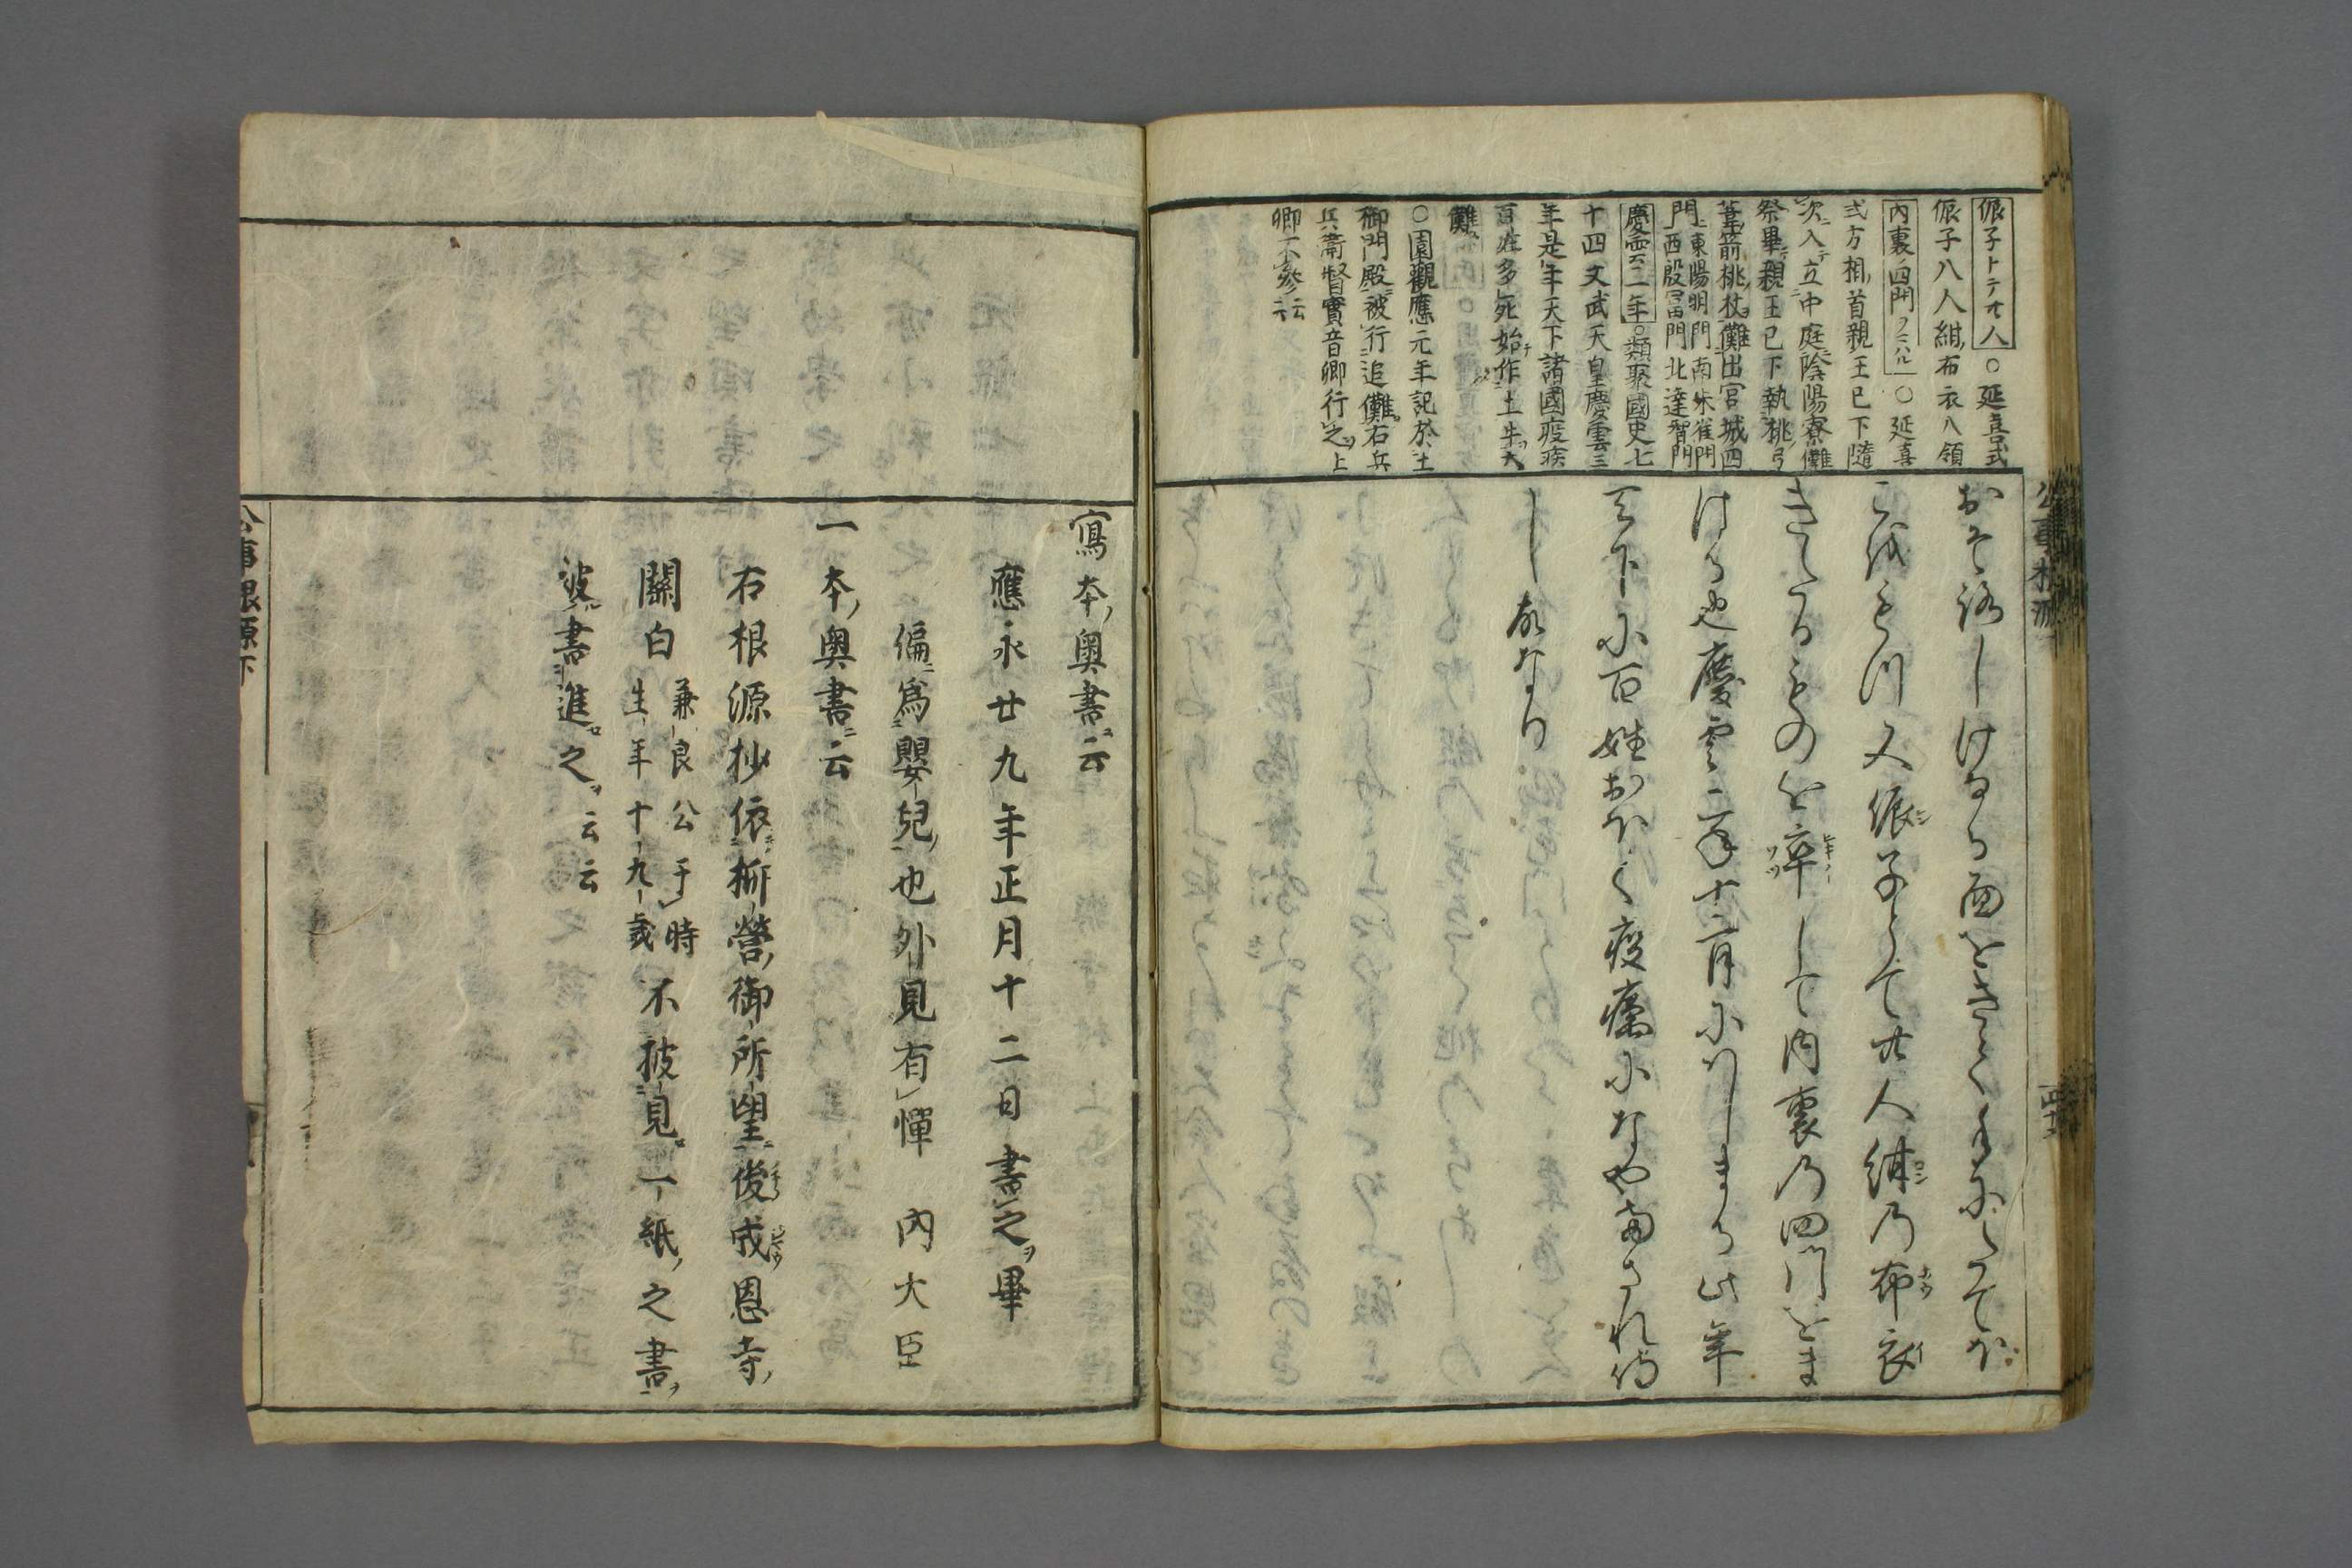 侲子トテ廿人○延喜式
侲子八人紺布衣八領
内裏ノ四門ヲマハル○延喜
式方相首親王已下隨
次入立中庭陰陽寮儺
祭畢親王已下執桃弓
葦箭桃杖儺出宮城四
門東陽明門南朱雀門
西殷富門北達智門
慶雲二年○類聚國史七
十四文武天皇慶雲三
年是年天下諸國疫疾
百姓多死始作土牛大
儺
○園觀應元年記於土
御門殿被行追儺右兵
兵衛督實音卿行之上
卿不参云云
おそろしけなる面をきて手にたてほ
こをもつ又侲子とて廿人紺の布衣
きたるものを率して内裏の四門をま
はる也慶雲二年十二月にはしまる此年
天下に百姓おほく疫癘になやまされ侍
し故なり
公事根源下
寫本ノ奧書ニ云
應永廿九年正月十二日書之ヲ畢
偏ニ爲嬰兒ノ也外見有憚 内大臣
一本ノ奧書ニ云
右根源抄依柳營ノ御所望ニ後成恩寺ノ
關白兼良公于時生年十九歳不被見一紙ノ之書ヲ
被書進之ヲ云云
公事根源下